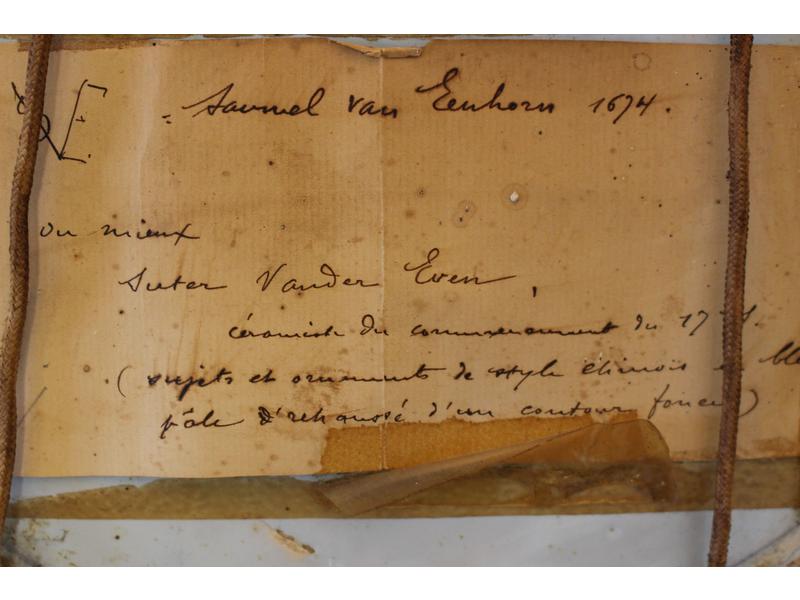 = Saumel van Eenhorn 1674.
ou mieux
Suter Vander Even,
céramiste du commencement du
(sujets et ornements de style chinois en bleu
pâle d'rehaussé d'un contour foncé)